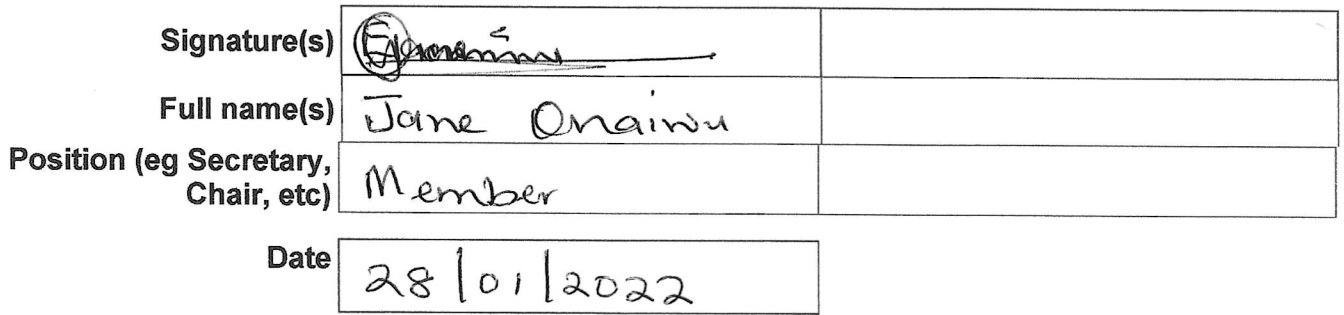 Signature(s)
Full name(s) Jane Onaiwu
Position (eg Secretary,
Chair, etc) Member
Date 28/01/2022